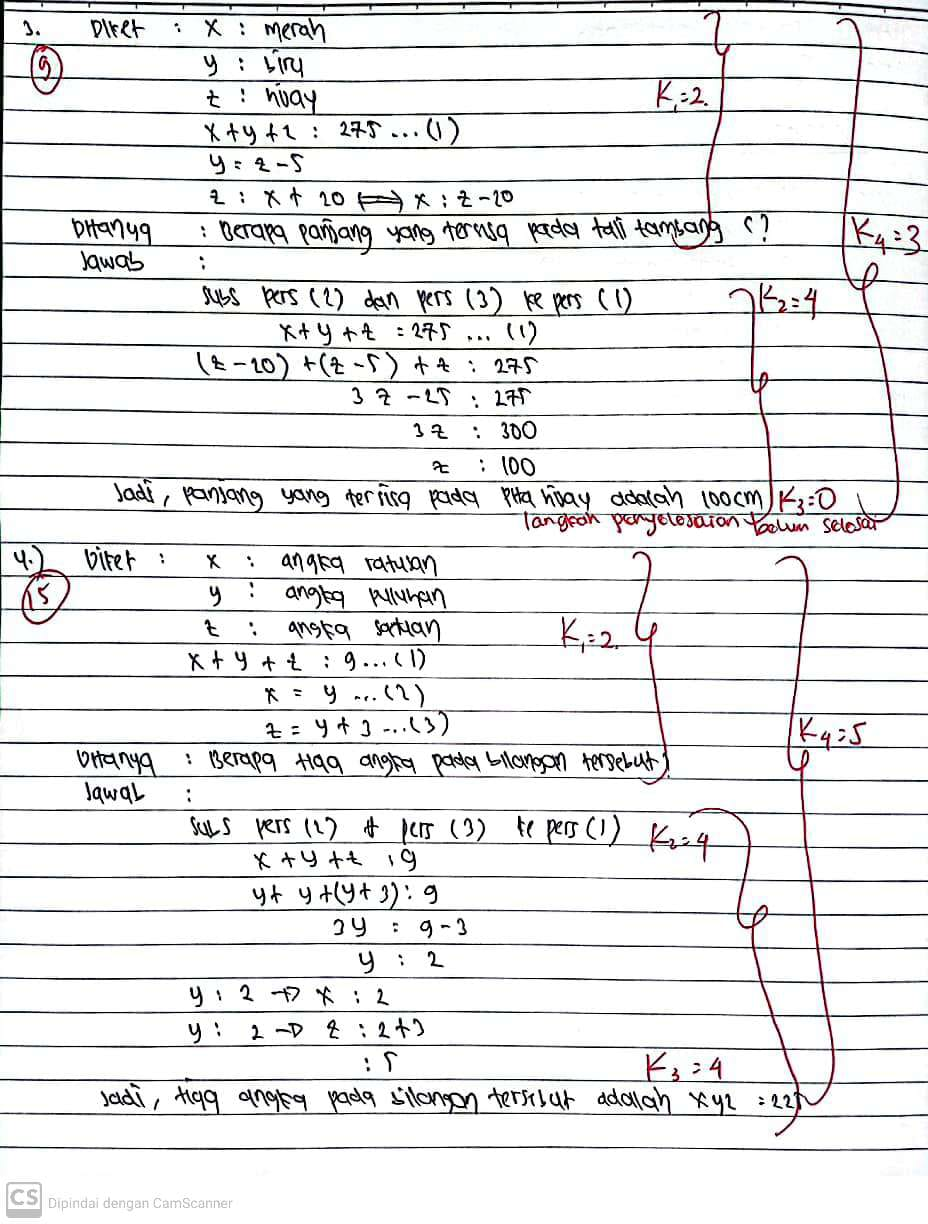 3. Diket : x : merah
9
y : biru
z : hijau
K₁=2.
x+y+z : 275 ...(1)
y = z-5
z : x + 20 ⟷ x : z-20
Ditanya : Berapa panjang yang tersisa pada tali tambang ?
K₄=3
Jawab :
subs pers (2) dan pers (3) ke pers (1)
K₂=4
x+y+z = 275 ... (1)
(z-20) +(z-5) + z : 275
3z -25 : 275
3z : 300
z : 100
Jadi, panjang yang tersisa pada pita hijau adalah 100cm
K₃=0
langkah penyelesaian belum selesai
4.) Diket : x : angka ratusan
15
y : angka puluhan
z : angka satuan
K₁=2.
x + y + z : 9...(1)
x = y ...(2)
z = y + 3 ...(3)
K₄=5
Ditanya : Berapa tiga angka pada bilangan tersebut
Jawab :
subs pers (2) & pers (3) ke pers (1)
K₂=4
x +y +z : 9
y+ y+(y+3) : 9
3y : 9-3
y : 2
y : 2 → x : 2
y : 2 → z : 2+3
: 5
K₃=4
Jadi, tiga angka pada bilangan tersebut adalah xyz = 225
CS Dipindai dengan CamScanner